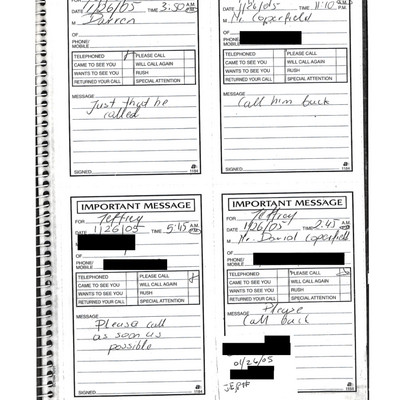 DATE 1/26/05 TIME 3:50 A.M. P.M.
M Darren
OF
PHONE/
MOBILE
TELEPHONED PLEASE CALL
CAME TO SEE YOU WILL CALL AGAIN
WANTS TO SEE YOU RUSH
RETURNED YOUR CALL SPECIAL ATTENTION
MESSAGE
Just that he
called
SIGNED 1184
DATE 1/26/05 TIME 11:10 A.M. P.M.
M Mr Coperfield
OF
PHONE/
MOBILE
TELEPHONED PLEASE CALL
CAME TO SEE YOU WILL CALL AGAIN
WANTS TO SEE YOU RUSH
RETURNED YOUR CALL SPECIAL ATTENTION
MESSAGE
Call him back
SIGNED 1184
IMPORTANT MESSAGE
FOR Jeffrey
DATE 1/26/05 TIME 5:45 A.M. P.M.
M
OF
PHONE/
MOBILE
TELEPHONED PLEASE CALL
CAME TO SEE YOU WILL CALL AGAIN
WANTS TO SEE YOU RUSH
RETURNED YOUR CALL SPECIAL ATTENTION
MESSAGE
Please call
as soon as
possible
SIGNED 1184
IMPORTANT MESSAGE
FOR Jeffrey
DATE 1/26/05 TIME 2:45 A.M. P.M.
M Mr. David Coperfield
OF
PHONE/
MOBILE
TELEPHONED PLEASE CALL
CAME TO SEE YOU WILL CALL AGAIN
WANTS TO SEE YOU RUSH
RETURNED YOUR CALL SPECIAL ATTENTION
MESSAGE
Please
Call back
01/26/05
1184